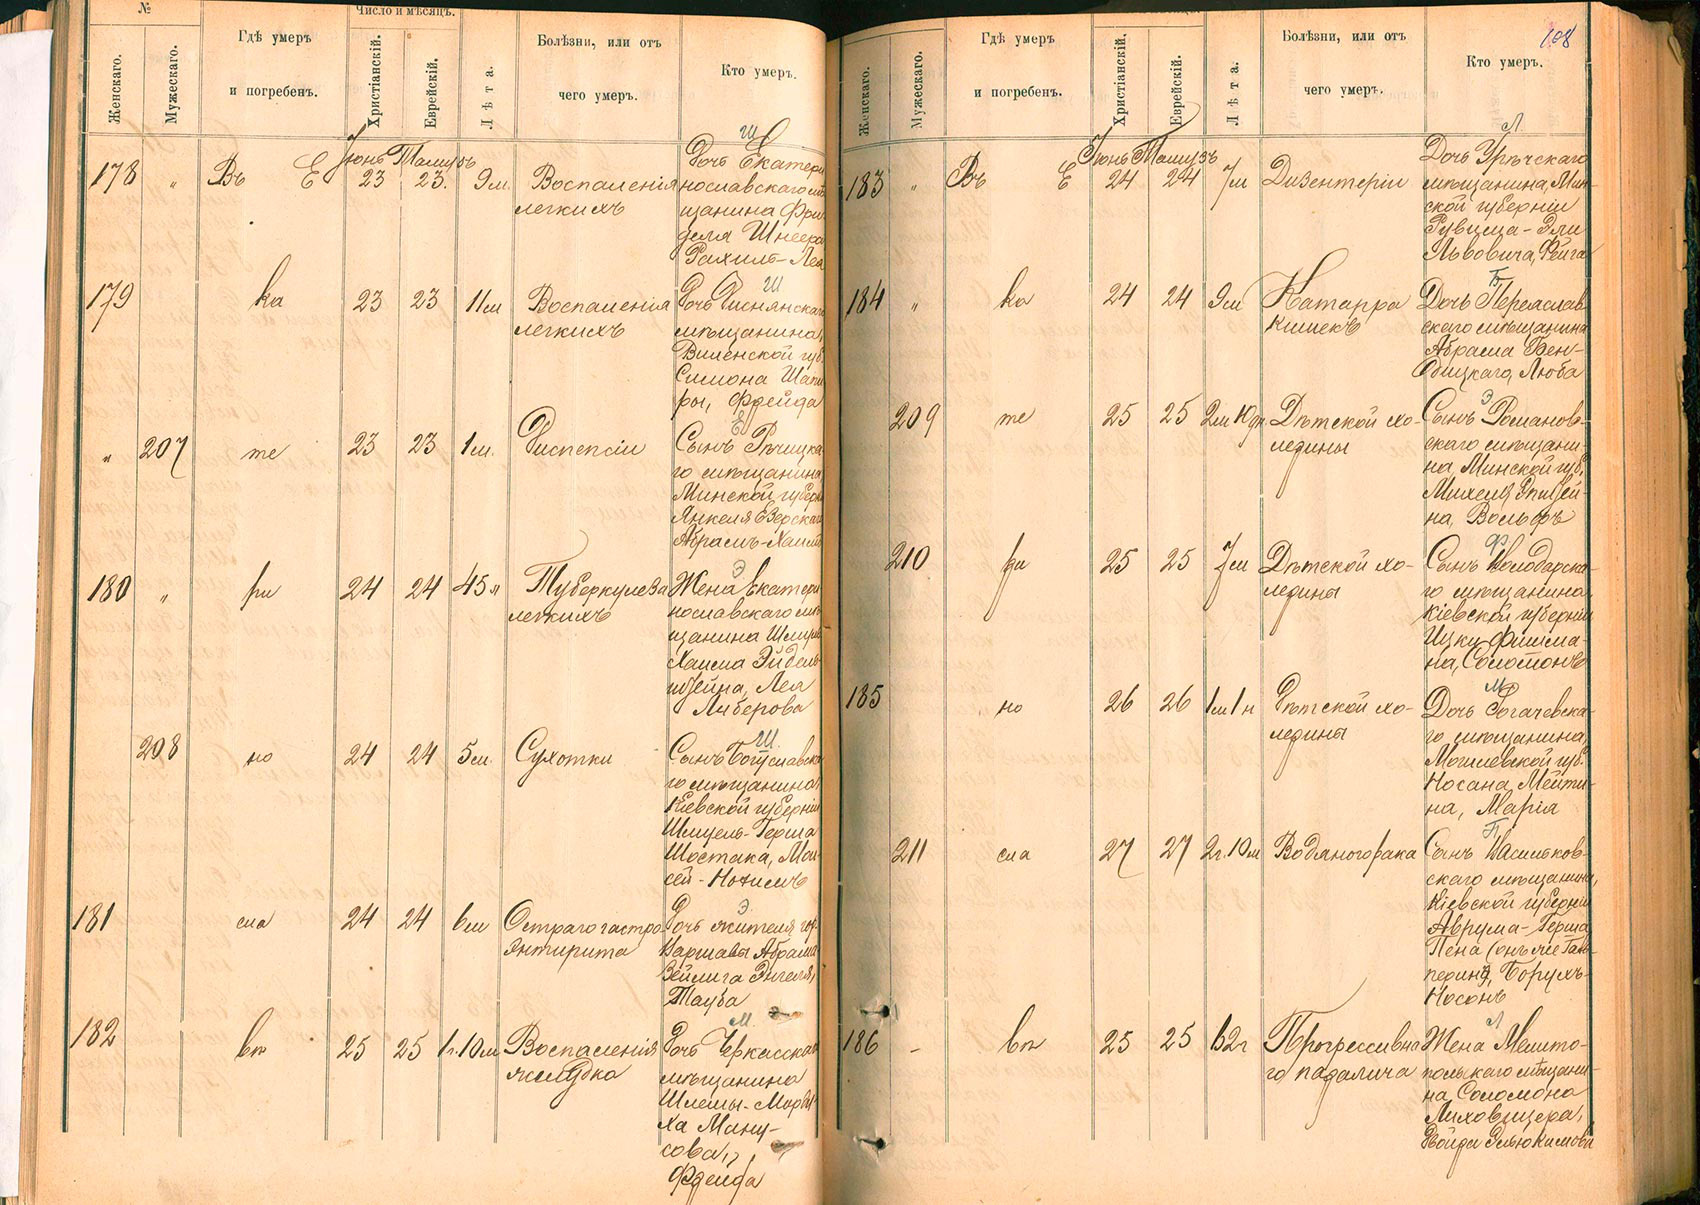 №
Число и мѣсяцъ.
Женскаго.
Мужескаго.
Гдѣ умеръ
и погребенъ.
Христіанскій.
Еврейскій.
Лѣта.
Болѣзни, или отъ
чего умеръ.
Кто умеръ.
Ш
Іюнь Тамузъ
178 " Въ Е 23 23. 9м. Воспаленія
легкихъ
Дочь Екатери
нославскаго мѣ
щанина Фри
деля Шнеера
Рахиль-Лея
179 ка 23 23 11м Воспаленія
легкихъ
Ш
Дочь Диснянскаго
мѣщанина,
Виленской губ.
Симона Шапи
ры, Фрейда
" 207 те 23 23 1м. Диспепсіи
Е
Сынъ Рѣчицка
го мѣщанина
Минской губерн
Янкеля Езерскаго
Абрамъ-Хаимъ
180 " ри 24 24 45л Туберкулеза
легкихъ
Э
Жена Екатери
нославскаго мѣ
щанина Шмуила
Хаима Эйдель
штейна, Лея
Либерова
208 но 24 24 5м. Сухотки
Ш
Сынъ Богуславска
го мѣщанина,
Кіевской губерніи
Шмуель-Герша
Шостака, Мои
сей-Нохимъ
181 сла 24 24 6м Остраго гастро
энтерита
Э
Дочь жителя гор.
Варшавы Абрама
Зейлига Энгеля,
Тауба
182 вѣ 25 25 1г.10м Воспаленія
желудка
М.
Дочь Черкасскаго
мѣщанина
Шлемы-Морду
ха Ману-
сова,
Фрейда
108
Женскаго.
Мужескаго.
Гдѣ умеръ
и погребенъ.
Христіанскій.
Еврейскій.
Лѣта.
Болѣзни, или отъ
чего умеръ.
Кто умеръ.
Л.
Іюнь Тамузъ
183 " Въ Е 24 24 7м Дизентеріи
Дочь Узрѣчскаго
мѣщанина, Мин-
ской губерніи
Рувима-Эли
Львовича, Фейга
184 " ка 24 24 9м Катарра
кишекъ
Б
Дочь Переяслав
скаго мѣщанина
Абрама Бен-
дицкаго, Люба
209 те 25 25 2м 10дн Дѣтской хо-
лерины
Э
Сынъ Романов-
скаго мѣщани-
на, Минской губ,
Михеля Эпштей-
на, Вольфъ
210 ри 25 25 7м Дѣтской хо-
лерины
Ф.
Сынъ Володарска-
го мѣщанина
Кіевской губерніи
Ицки Фишма-
на, Соломонъ
185 но 26 26 1м 1н Дѣтской хо-
лерины
М
Дочь Рогачевска-
го мѣщанина,
Могилевской губ.
Носана Мейти-
на, Марія
211 сла 27 27 2г.10м Водяного рака
П
Сынъ Васильков-
скаго мѣщанина,
Кіевской губерніи
Аврума-Герша
Пена (онъ же Галь
перинъ), Борухъ-
Носонъ
186 - вѣ 25 25 62г Прогрессивна
го паралича
Л
Жена Мелито-
польскаго мѣщани-
на, Соломона
Лиховицера,
Фейда Эльюкимова